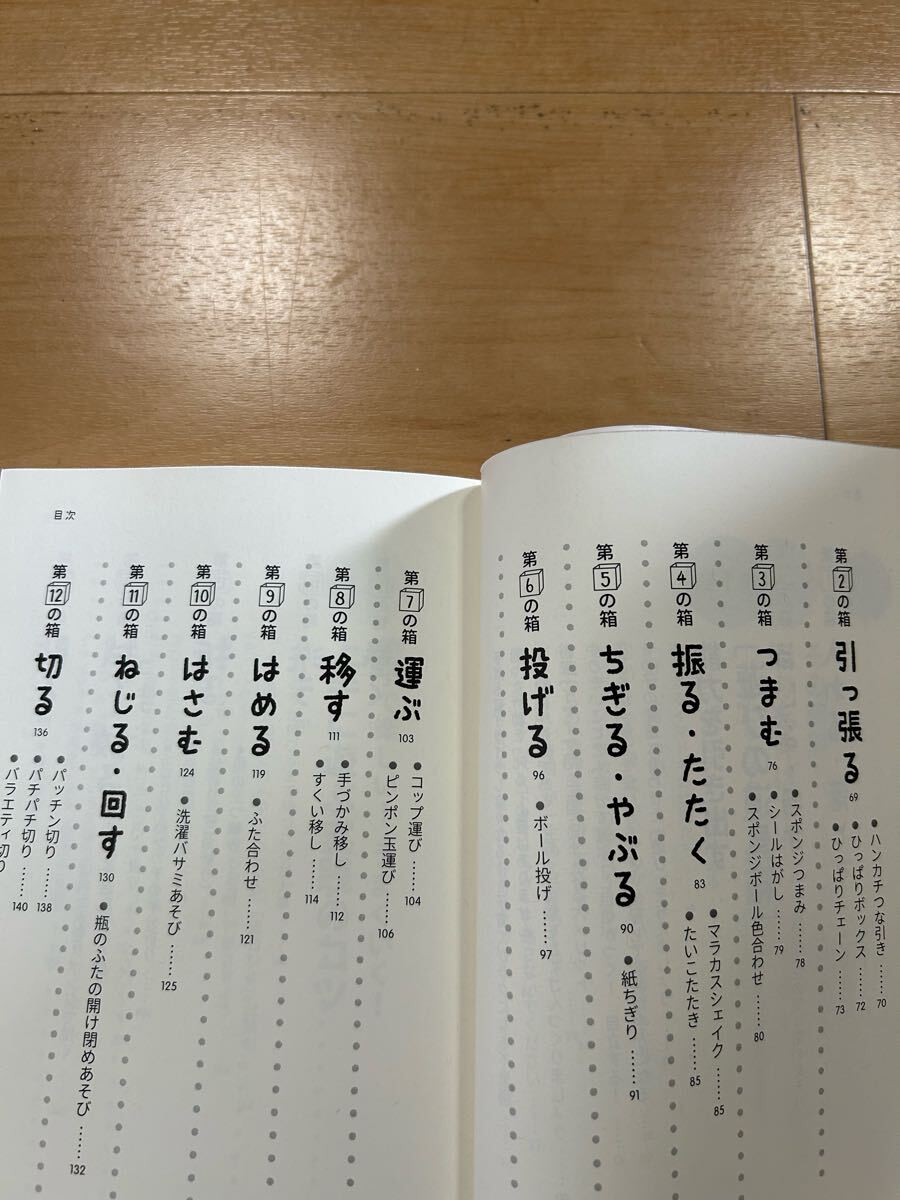 第2の箱 引っ張る 69
●ハンカチつな引き……70
●ひっぱりボックス……72
●ひっぱりチェーン……73
第3の箱 つまむ 76
●スポンジつまみ……78
●シールはがし……79
●スポンジボール色合わせ……80
第4の箱 振る・たたく 83
●マラカスシェイク……85
●たいこたたき……85
第5の箱 ちぎる・やぶる 90
●紙ちぎり……91
第6の箱 投げる 96
●ボール投げ……97
目次
第7の箱 運ぶ 103
●コップ運び……104
●ピンポン玉運び……106
第8の箱 移す 111
●手づかみ移し……112
●すくい移し……114
第9の箱 はめる 119
●ふた合わせ……121
第10の箱 はさむ 124
●洗濯バサミあそび……125
第11の箱 ねじる・回す 130
●瓶のふたの開け閉めあそび……132
第12の箱 切る 136
●パッチン切り……138
●パチパチ切り……140
●バラエティ切り